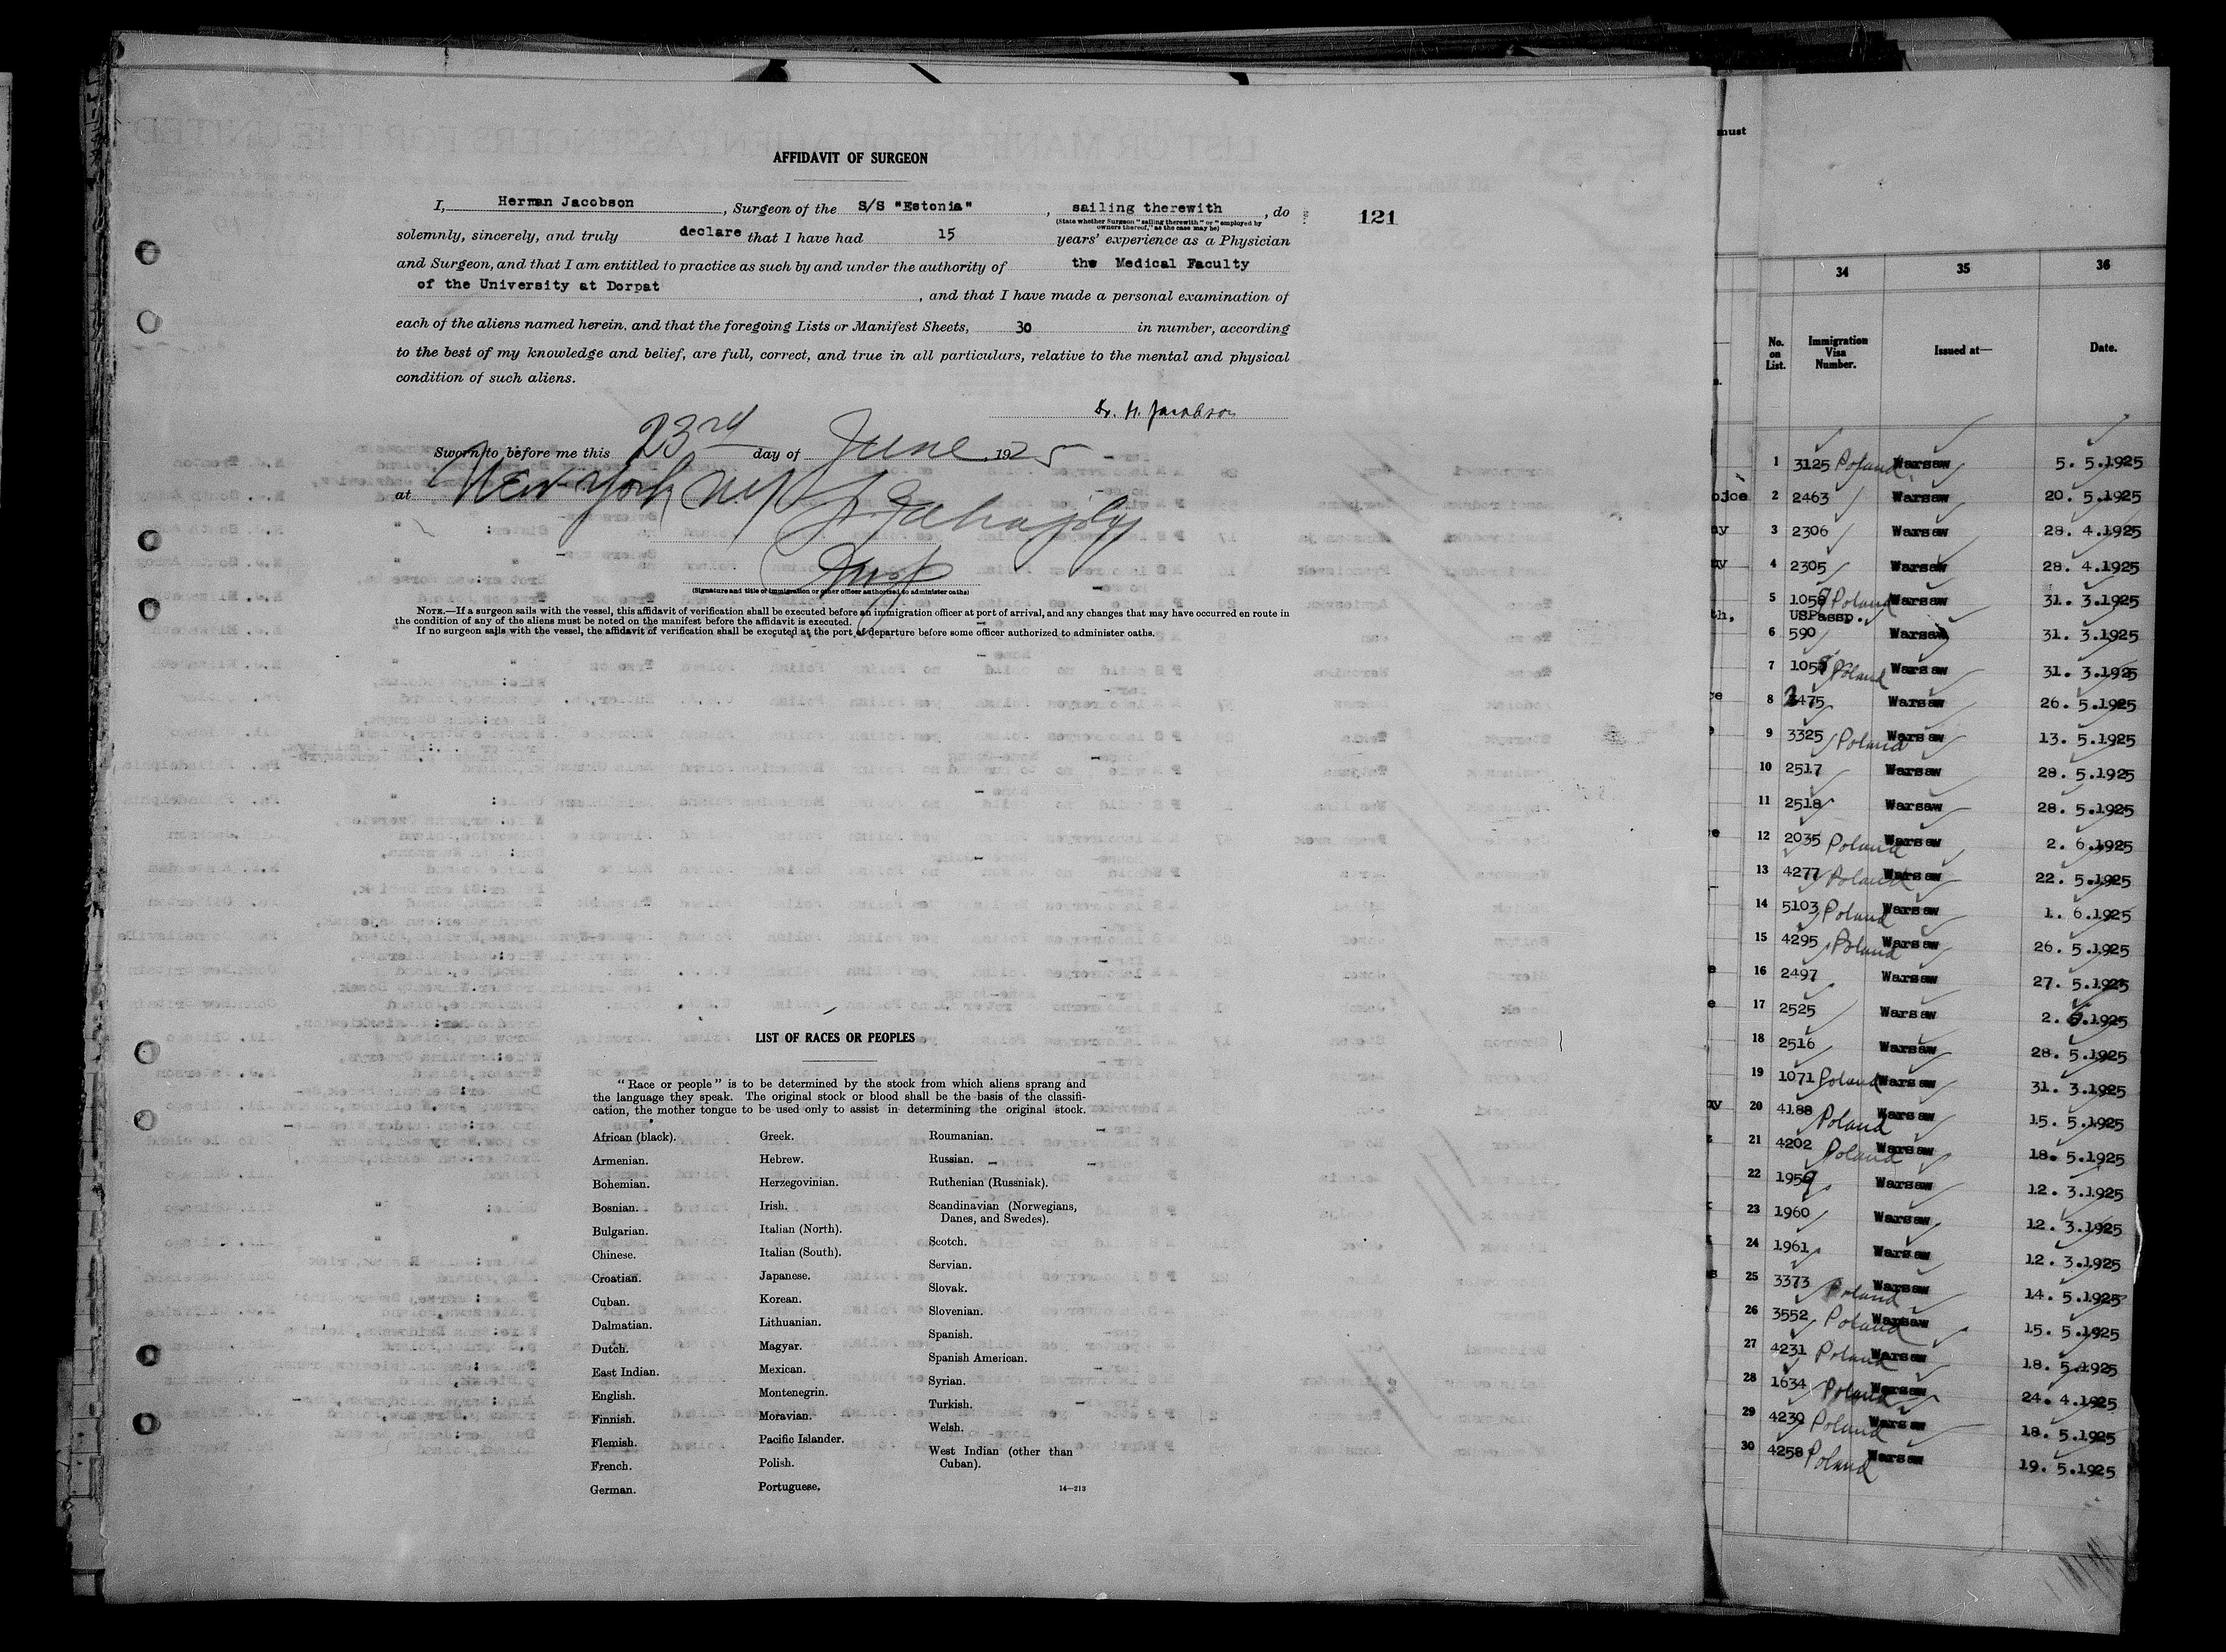 AFFIDAVIT OF SURGEON
I, Herman Jacobson, Surgeon of the S/S "Estonia", sailing therewith, do
(State whether Surgeon "sailing therewith" or "employed by owners thereof," as the case may be)
121
solemnly, sincerely, and truly declare that I have had 15 years' experience as a Physician
and Surgeon, and that I am entitled to practice as such by and under the authority of the Medical Faculty
of the University at Dorpat, and that I have made a personal examination of
each of the aliens named herein, and that the foregoing Lists or Manifest Sheets, 30 in number, according
to the best of my knowledge and belief, are full, correct, and true in all particulars, relative to the mental and physical
condition of such aliens.
Dr. H. Jacobson
Sworn to before me this 23rd day of June, 1925
at New York N.Y.
(Signature and title of immigration or other officer authorized to administer oaths)
NOTE.—If a surgeon sails with the vessel, this affidavit of verification shall be executed before an immigration officer at port of arrival, and any changes that may have occurred en route in
the condition of any of the aliens must be noted on the manifest before the affidavit is executed.
If no surgeon sails with the vessel, the affidavit of verification shall be executed at the port of departure before some officer authorized to administer oaths.
LIST OF RACES OR PEOPLES
"Race or people" is to be determined by the stock from which aliens sprang and
the language they speak. The original stock or blood shall be the basis of the classifi-
cation, the mother tongue to be used only to assist in determining the original stock.
African (black).
Armenian.
Bohemian.
Bosnian.
Bulgarian.
Chinese.
Croatian.
Cuban.
Dalmatian.
Dutch.
East Indian.
English.
Finnish.
Flemish.
French.
German.
Greek.
Hebrew.
Herzegovinian.
Irish.
Italian (North).
Italian (South).
Japanese.
Korean.
Lithuanian.
Magyar.
Mexican.
Montenegrin.
Moravian.
Pacific Islander.
Polish.
Portuguese.
Roumanian.
Russian.
Ruthenian (Russniak).
Scandinavian (Norwegians,
Danes, and Swedes).
Scotch.
Servian.
Slovak.
Slovenian.
Spanish.
Spanish American.
Syrian.
Turkish.
Welsh.
West Indian (other than
Cuban).
14—213
must
34 35 36
No. on List. Immigration Visa Number. Issued at— Date.
1 3125 Poland Warsaw 5. 5.1925
2 2463 Warsaw 20. 5.1925
3 2306 Warsaw 28. 4.1925
4 2305 Warsaw 28. 4.1925
5 1059 Poland Warsaw 31. 3.1925
USPassp.
6 590 Warsaw 31. 3.1925
7 1058 Poland Warsaw 31. 3.1925
8 2475 Warsaw 26. 5.1925
9 3325 Poland Warsaw 13. 5.1925
10 2517 Warsaw 28. 5.1925
11 2518 Warsaw 28. 5.1925
12 2035 Poland Warsaw 2. 6.1925
13 4277 Poland Warsaw 22. 5.1925
14 5103 Poland Warsaw 1. 6.1925
15 4295 Poland Warsaw 26. 5.1925
16 2497 Warsaw 27. 5.1925
17 2525 Warsaw 2. 6.1925
18 2516 Warsaw 28. 5.1925
19 1071 Poland Warsaw 31. 3.1925
20 4188 Poland Warsaw 15. 5.1925
21 4202 Poland Warsaw 18. 5.1925
22 1959 Warsaw 12. 3.1925
23 1960 Warsaw 12. 3.1925
24 1961 Warsaw 12. 3.1925
25 3373 Poland Warsaw 14. 5.1925
26 3552 Poland Warsaw 15. 5.1925
27 4231 Poland Warsaw 18. 5.1925
28 1634 Poland Warsaw 24. 4.1925
29 4239 Poland Warsaw 18. 5.1925
30 4258 Poland Warsaw 19. 5.1925